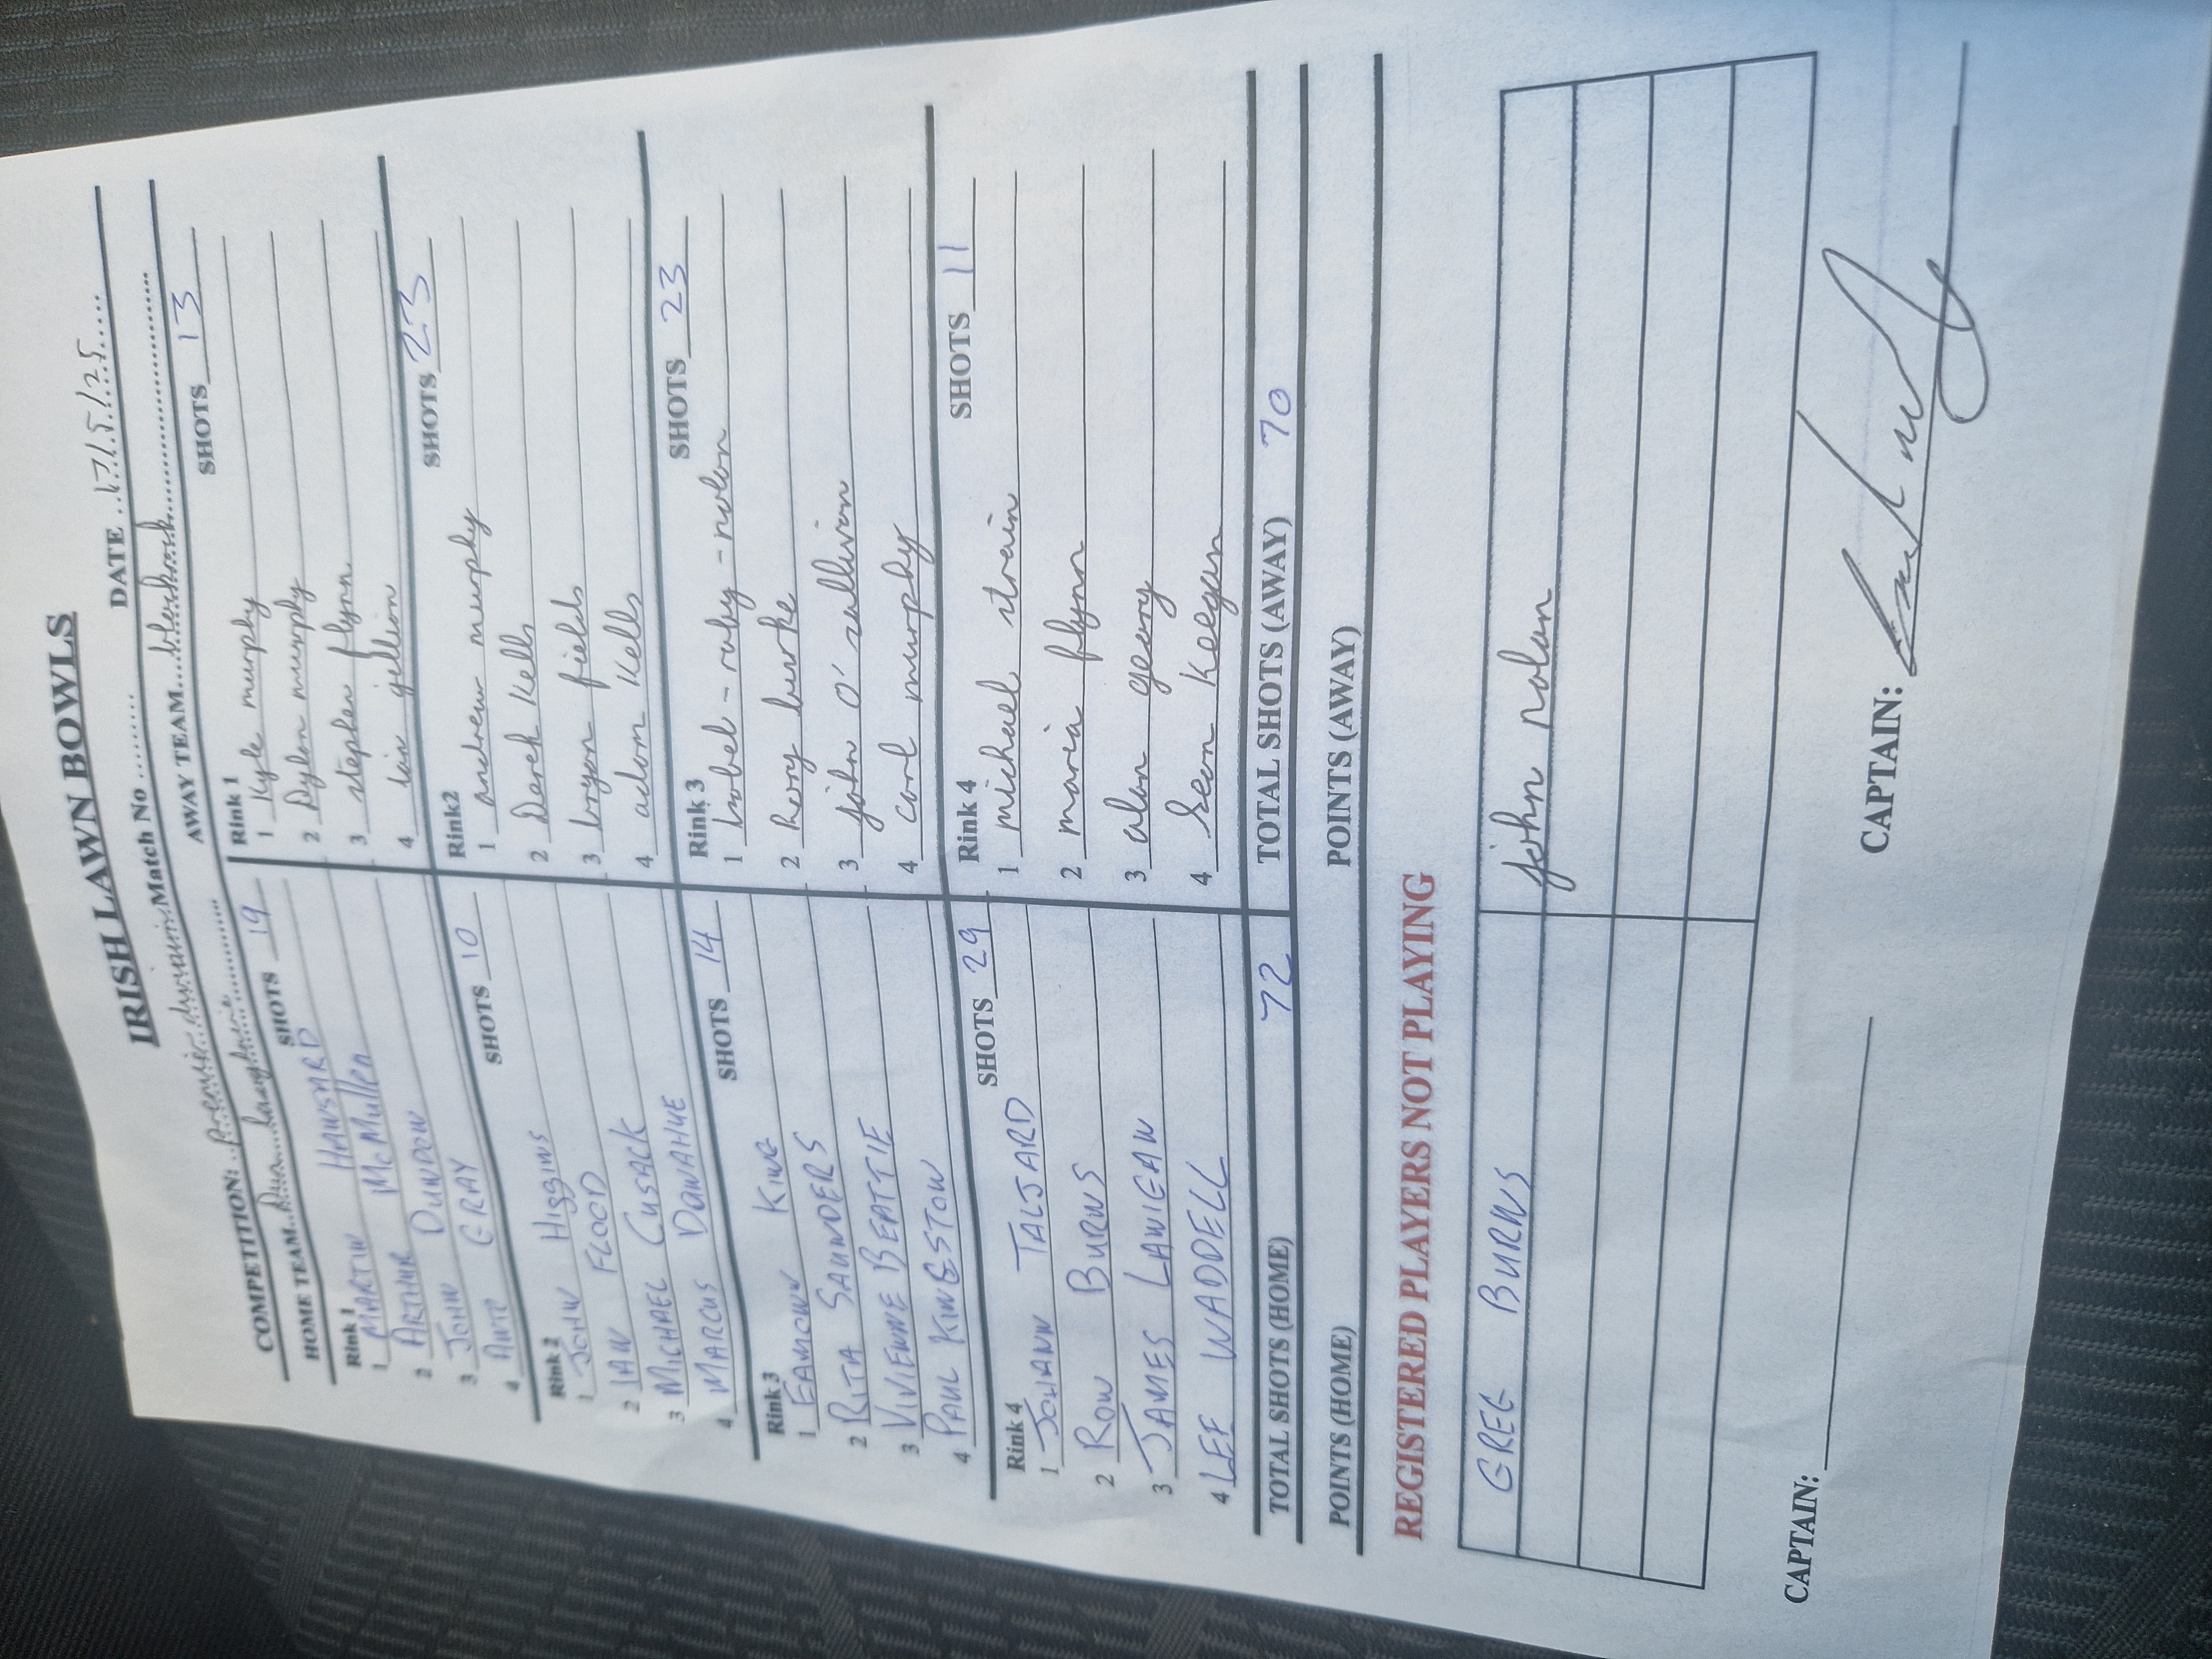 IRISH LAWN BOWLS
COMPETITION: Premier division Match No ........ DATE 17/5/25
HOME TEAM Dun Laoghaire AWAY TEAM blackrock
SHOTS 19 SHOTS 13
Rink 1 Rink 1
1 MARTIN HANSARD 1 Kyle murphy
2 ARTHUR McMullen 2 Dylan murphy
3 JOHN DUNDON 3 stephen flynn
4 ANTO GRAY 4 iain
SHOTS 10 SHOTS 23
Rink 2 Rink2
1 JOHN HIggINS 1 andrew murphy
2 IAN FLOOD 2 Derek Kells
3 MICHAEL CUSACK 3 bryan fields
4 MARCUS DONAHUE 4 adam Kells
SHOTS 14 SHOTS 23
Rink 3 Rink 3
1 EAMONN KING 1 Isobel - ruby - nolan
2 RITA SAUNDERS 2 Rory burke
3 VIVIENNE BEATTIE 3 john O'sullivan
4 PAUL KINGSTON 4 carl murphy
SHOTS 29 SHOTS 11
Rink 4 Rink 4
1 JOHANN TALJARD 1 michael strain
2 RON BURNS 2 maria flynn
3 JAMES LANIGAN 3 alan geary
4 LEE WADDELL 4 Sean Keegan
TOTAL SHOTS (HOME) 72 TOTAL SHOTS (AWAY) 70
POINTS (HOME) POINTS (AWAY)
REGISTERED PLAYERS NOT PLAYING
GREG BURNS john nolan
CAPTAIN: CAPTAIN: